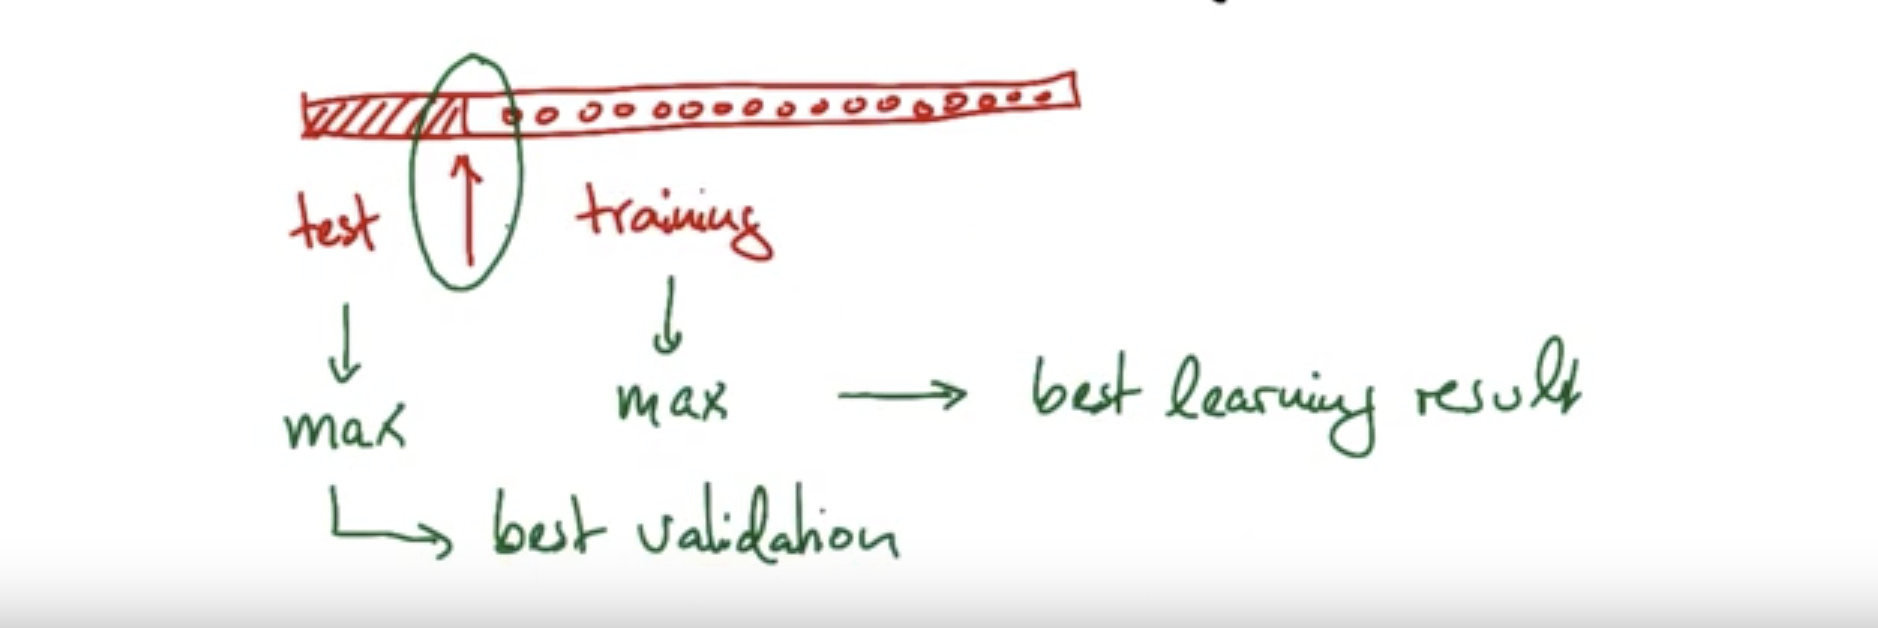 test training
max max → best learning result
best validation